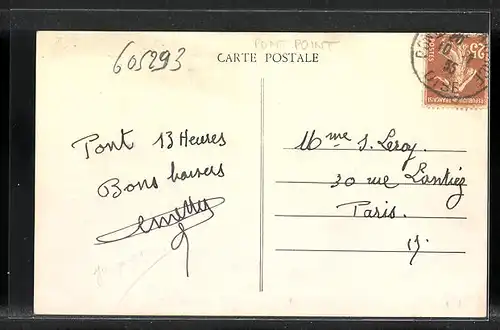 605293
PONT POINT
CARTE POSTALE
25c
POSTES
OISE
Pont 13 Heures
Bons baisers
Mme S. Leroy.
30 rue Lantiez
Paris.
17.